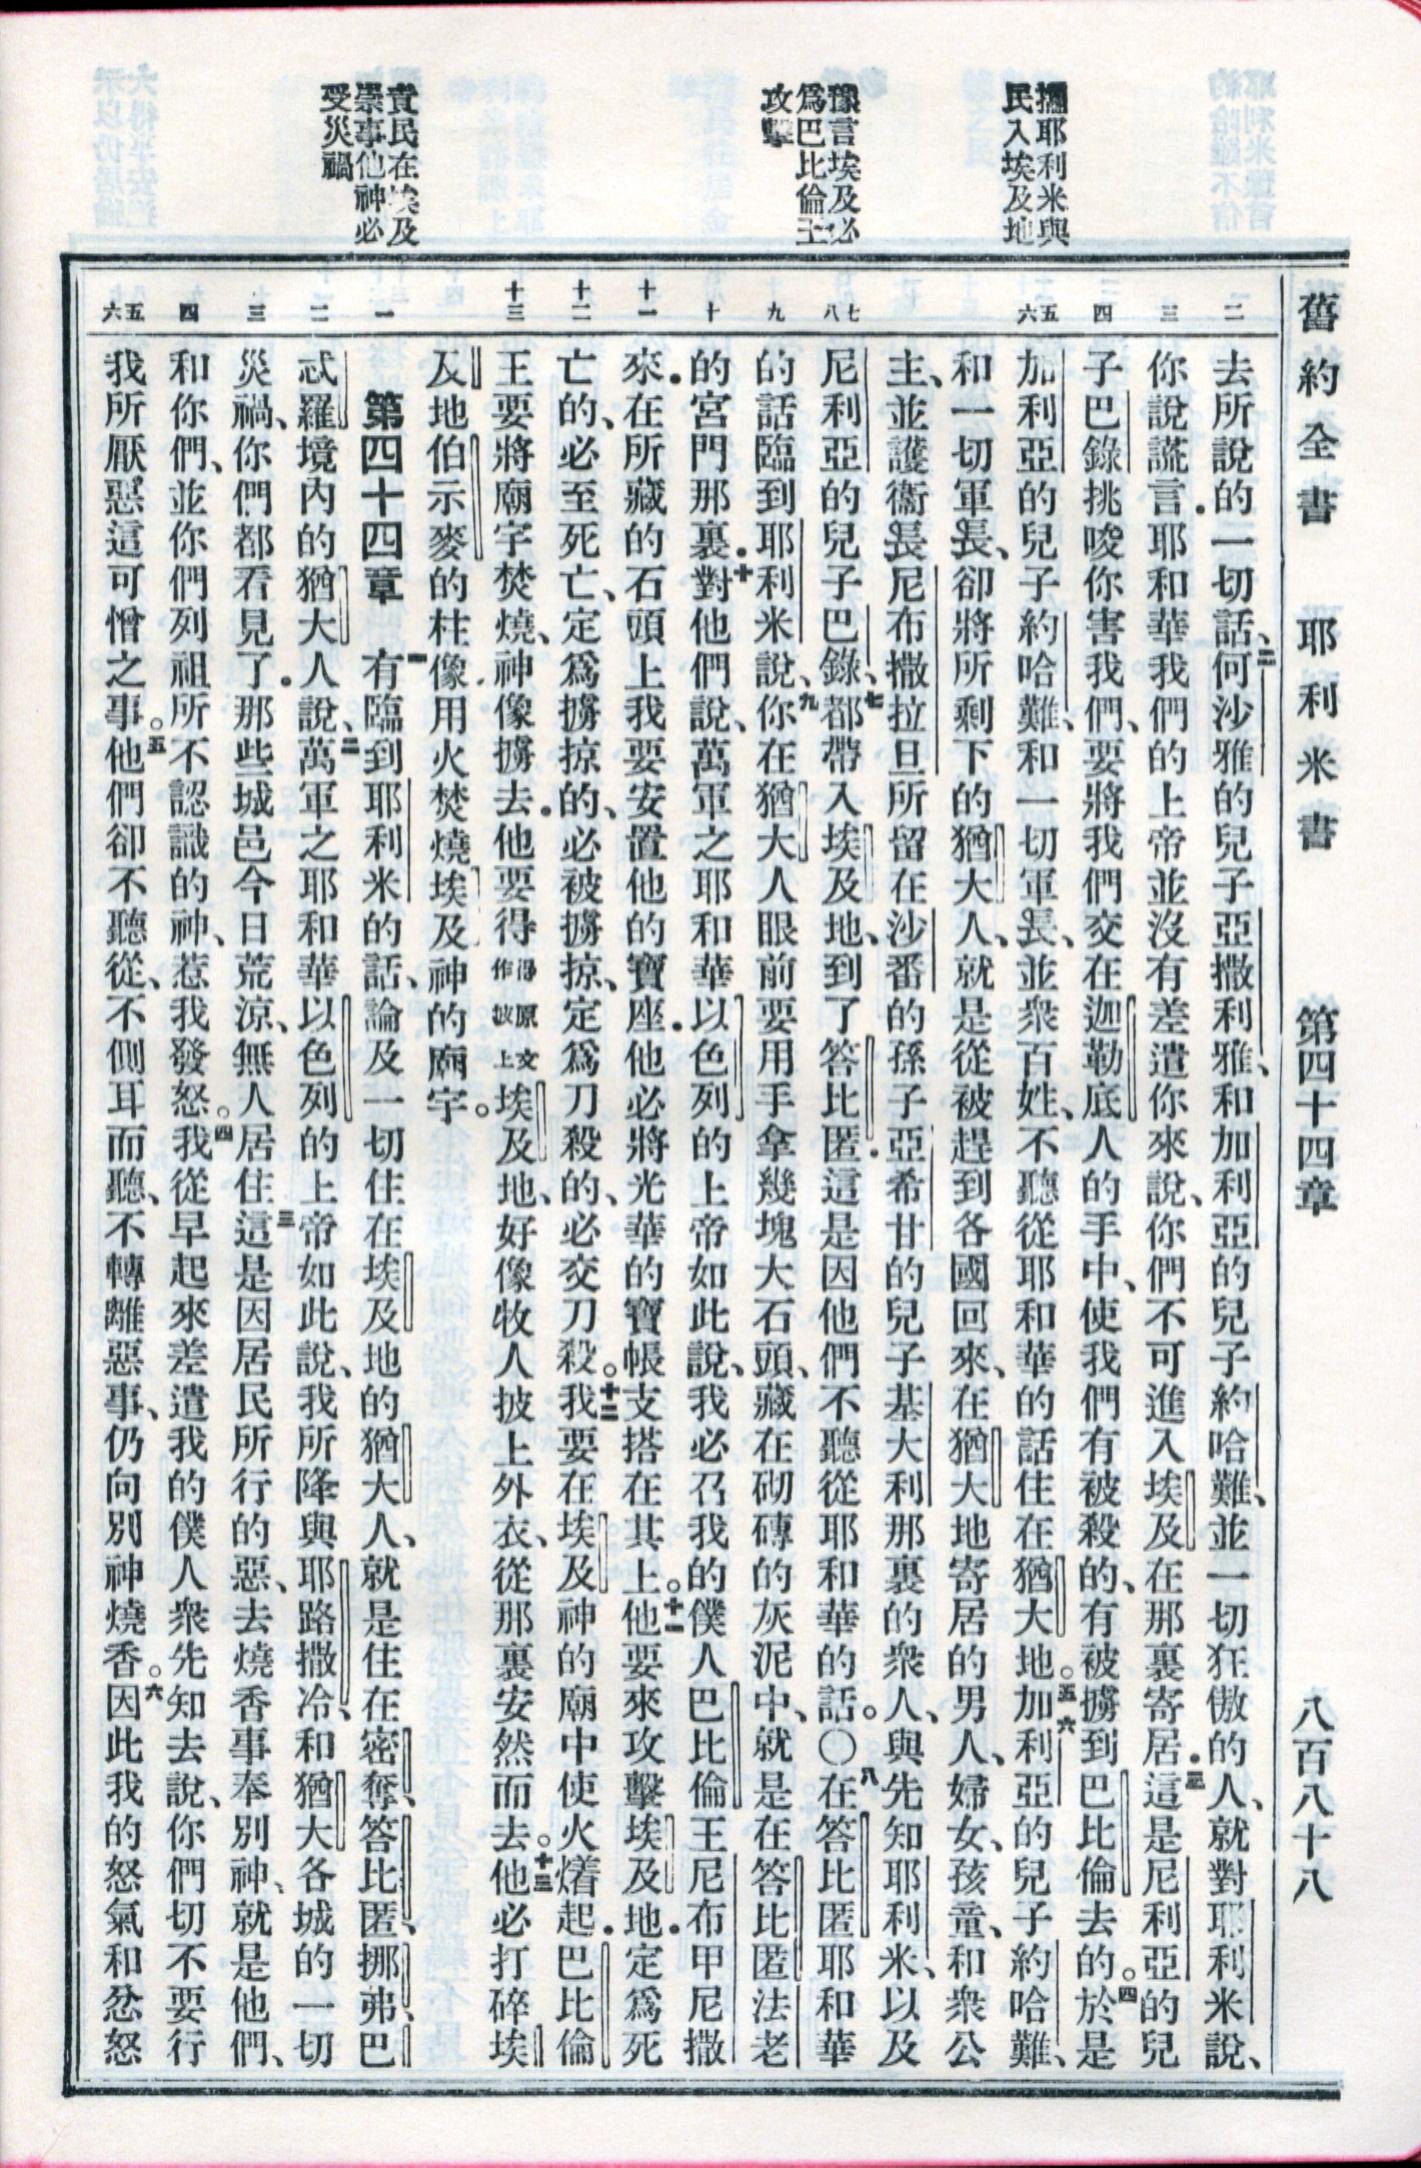 舊約全書　耶利米書　第四十四章　八百八十八
攜耶利米與
民入埃及地
豫言埃及必
爲巴比倫王
攻擊
責民在埃及
崇事他神必
受災禍
二 三 四 五六 七八 九 十 十一 十二 十三 一 二 三 四 五六
去所說的一切話、二何沙雅的兒子亞撒利雅、和加利亞的兒子約哈難、並一切狂傲的人、就對耶利米說、
你說謊言．耶和華我們的上帝並沒有差遣你來說、你們不可進入埃及在那裏寄居．三這是尼利亞的兒
子巴錄挑唆你害我們、要將我們交在迦勒底人的手中、使我們有被殺的、有被擄到巴比倫去的。四於是
加利亞的兒子約哈難、和一切軍長、並衆百姓、不聽從耶和華的話住在猶大地。五六加利亞的兒子約哈難、
和一切軍長、卻將所剩下的猶大人、就是從被趕到各國回來、在猶大地寄居的男人、婦女、孩童、和衆公
主、並護衞長尼布撒拉旦所留在沙番的孫子亞希甘的兒子基大利那裏的衆人、與先知耶利米、以及
尼利亞的兒子巴錄、七都帶入埃及地、到了答比匿．這是因他們不聽從耶和華的話。〇八在答比匿耶和華
的話臨到耶利米說、九你在猶大人眼前要用手拿幾塊大石頭、藏在砌磚的灰泥中、就是在答比匿法老
的宮門那裏．十對他們說、萬軍之耶和華以色列的上帝如此說、我必召我的僕人巴比倫王尼布甲尼撒
來．在所藏的石頭上我要安置他的寶座．他必將光華的寶帳支搭在其上。十一他要來攻擊埃及地．定爲死
亡的、必至死亡、定爲擄掠的、必被擄掠、定爲刀殺的、必交刀殺。十二我要在埃及神的廟中使火㸌起．巴比倫
王要將廟宇焚燒、神像擄去．他要得得原文作披上埃及地、好像牧人披上外衣、從那裏安然而去。十三他必打碎埃
及地伯示麥的柱像．用火焚燒埃及神的廟宇。
第四十四章　一有臨到耶利米的話、論及一切住在埃及地的猶大人、就是住在密奪、答比匿、挪弗、巴
忒羅境內的猶大人說、二萬軍之耶和華以色列的上帝如此說、我所降與耶路撒冷、和猶大各城的一切
災禍、你們都看見了．那些城邑今日荒涼、無人居住．三這是因居民所行的惡、去燒香事奉別神、就是他們、
和你們、並你們列祖所不認識的神、惹我發怒。四我從早起來差遣我的僕人衆先知去說、你們切不要行
我所厭惡這可憎之事。五他們卻不聽從、不側耳而聽、不轉離惡事、仍向別神燒香。六因此我的怒氣和忿怒